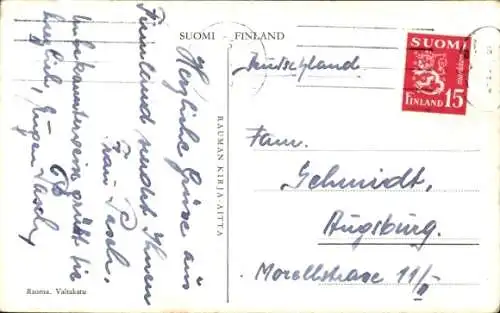 SUOMI - FINLAND
Herzliche Grüße aus
Finnland sendet Ihnen
Frau Pesch.
Unbekannterweise grüßt Sie
herzlich, Eugen Pasch
Rauma. Valtakatu
RAUMAN KIRJA-AITTA
SUOMI
FINLAND 15
Deutschland
Fam.
Schmidt,
Augsburg.
Morellstrasse 11/II